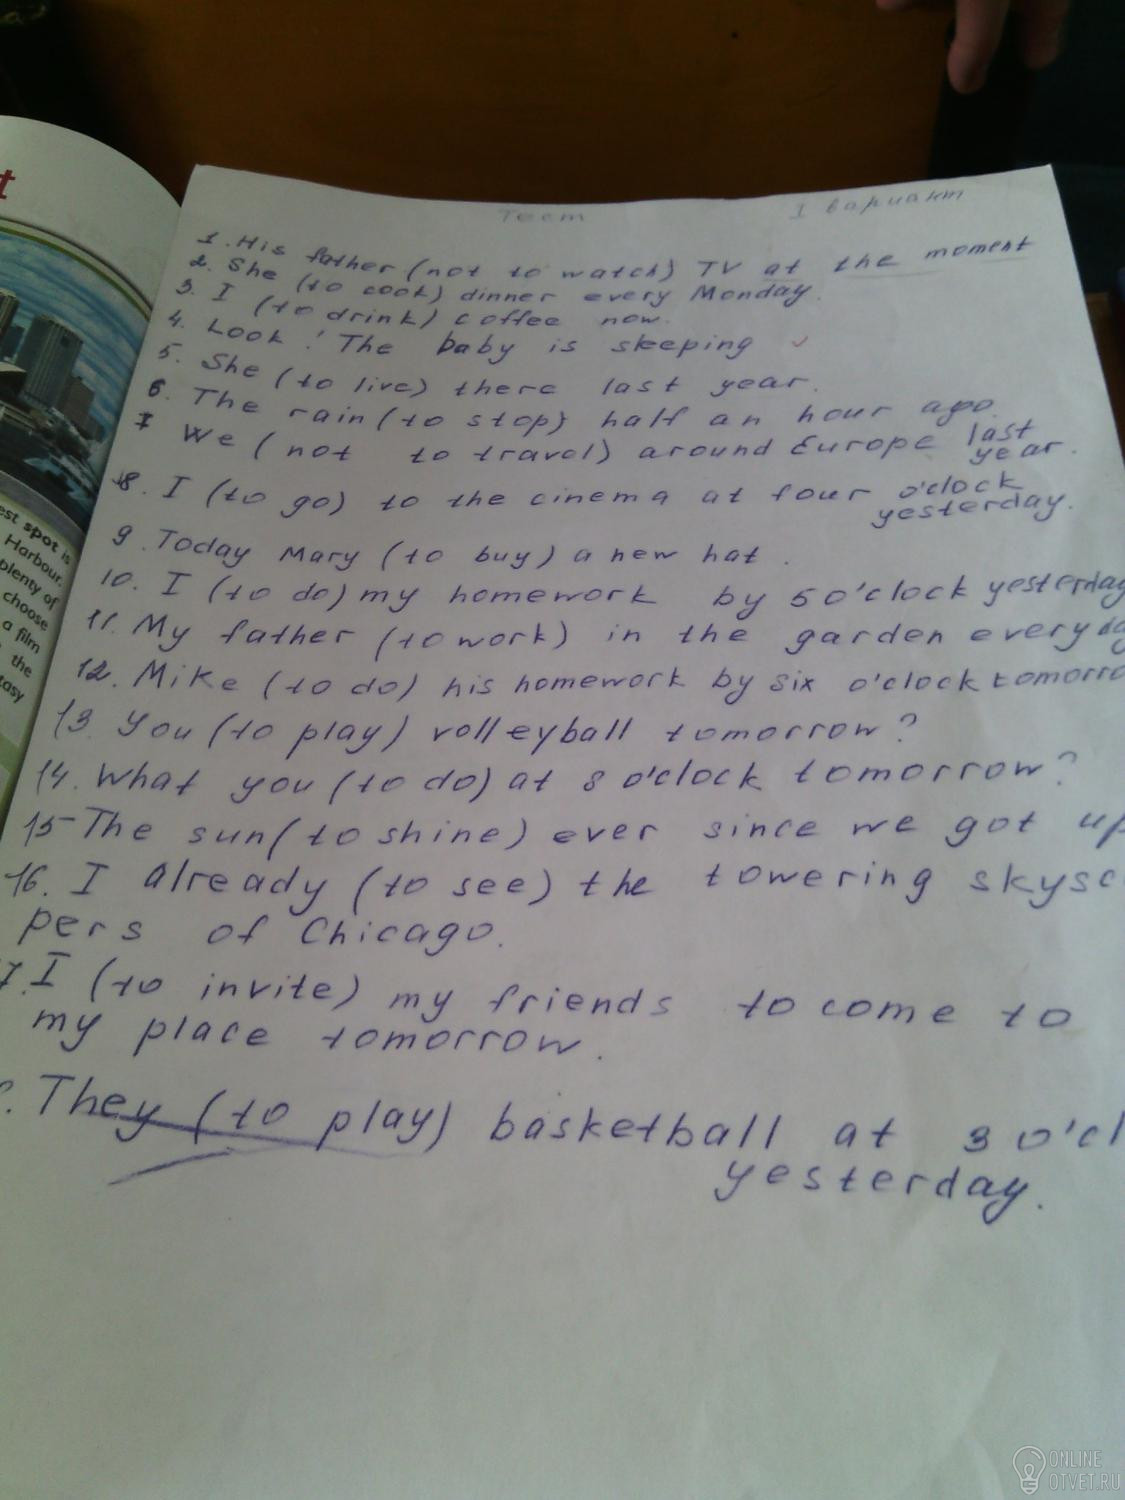 t
est spot is
Harbour.
plenty of
choose
a film
the
tasy
Тест I вариант
1. His father (not to watch) TV at the moment
2. She (to cook) dinner every Monday.
3. I (to drink) coffee now.
4. Look! The baby is sleeping
5. She (to live) there last year.
6. The rain (to stop) half an hour ago.
7 We (not to travel) around Europe last
year.
8. I (to go) to the cinema at four o'clock
yesterday.
9. Today Mary (to buy) a new hat.
10. I (to do) my homework by 5 o'clock yesterday
11. My father (to work) in the garden every da
12. Mike (to do) his homework by six o'clock tomorro
13. You (to play) volleyball tomorrow?
14. What you (to do) at 8 o'clock tomorrow?
15 The sun (to shine) ever since we got up
16. I already (to see) the towering skysc
pers of Chicago.
7. I (to invite) my friends to come to
my place tomorrow.
. They (to play) basketball at 3 o'cl
yesterday.
ONLINE
OTVET.RU